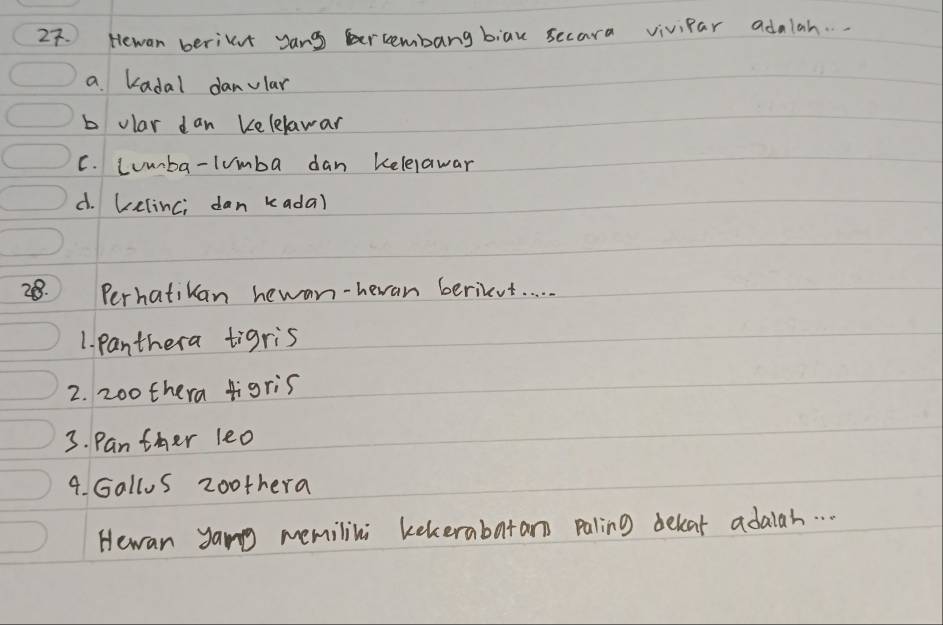 27. Hewan berikut yang berkembang biak secara vivipar adalah...
a. Kadal dan ular
b ular dan Kelelawar
C. Lumba-lumba dan Kelelawar
d. Kelinci dan kadal
28. Perhatikan hewan-hewan berikut.....
1. Panthera tigris
2. zoothera tigris
3. Panther leo
4. Gallus zoothera
Hewan yang memiliki kekerabatan paling dekat adalah...